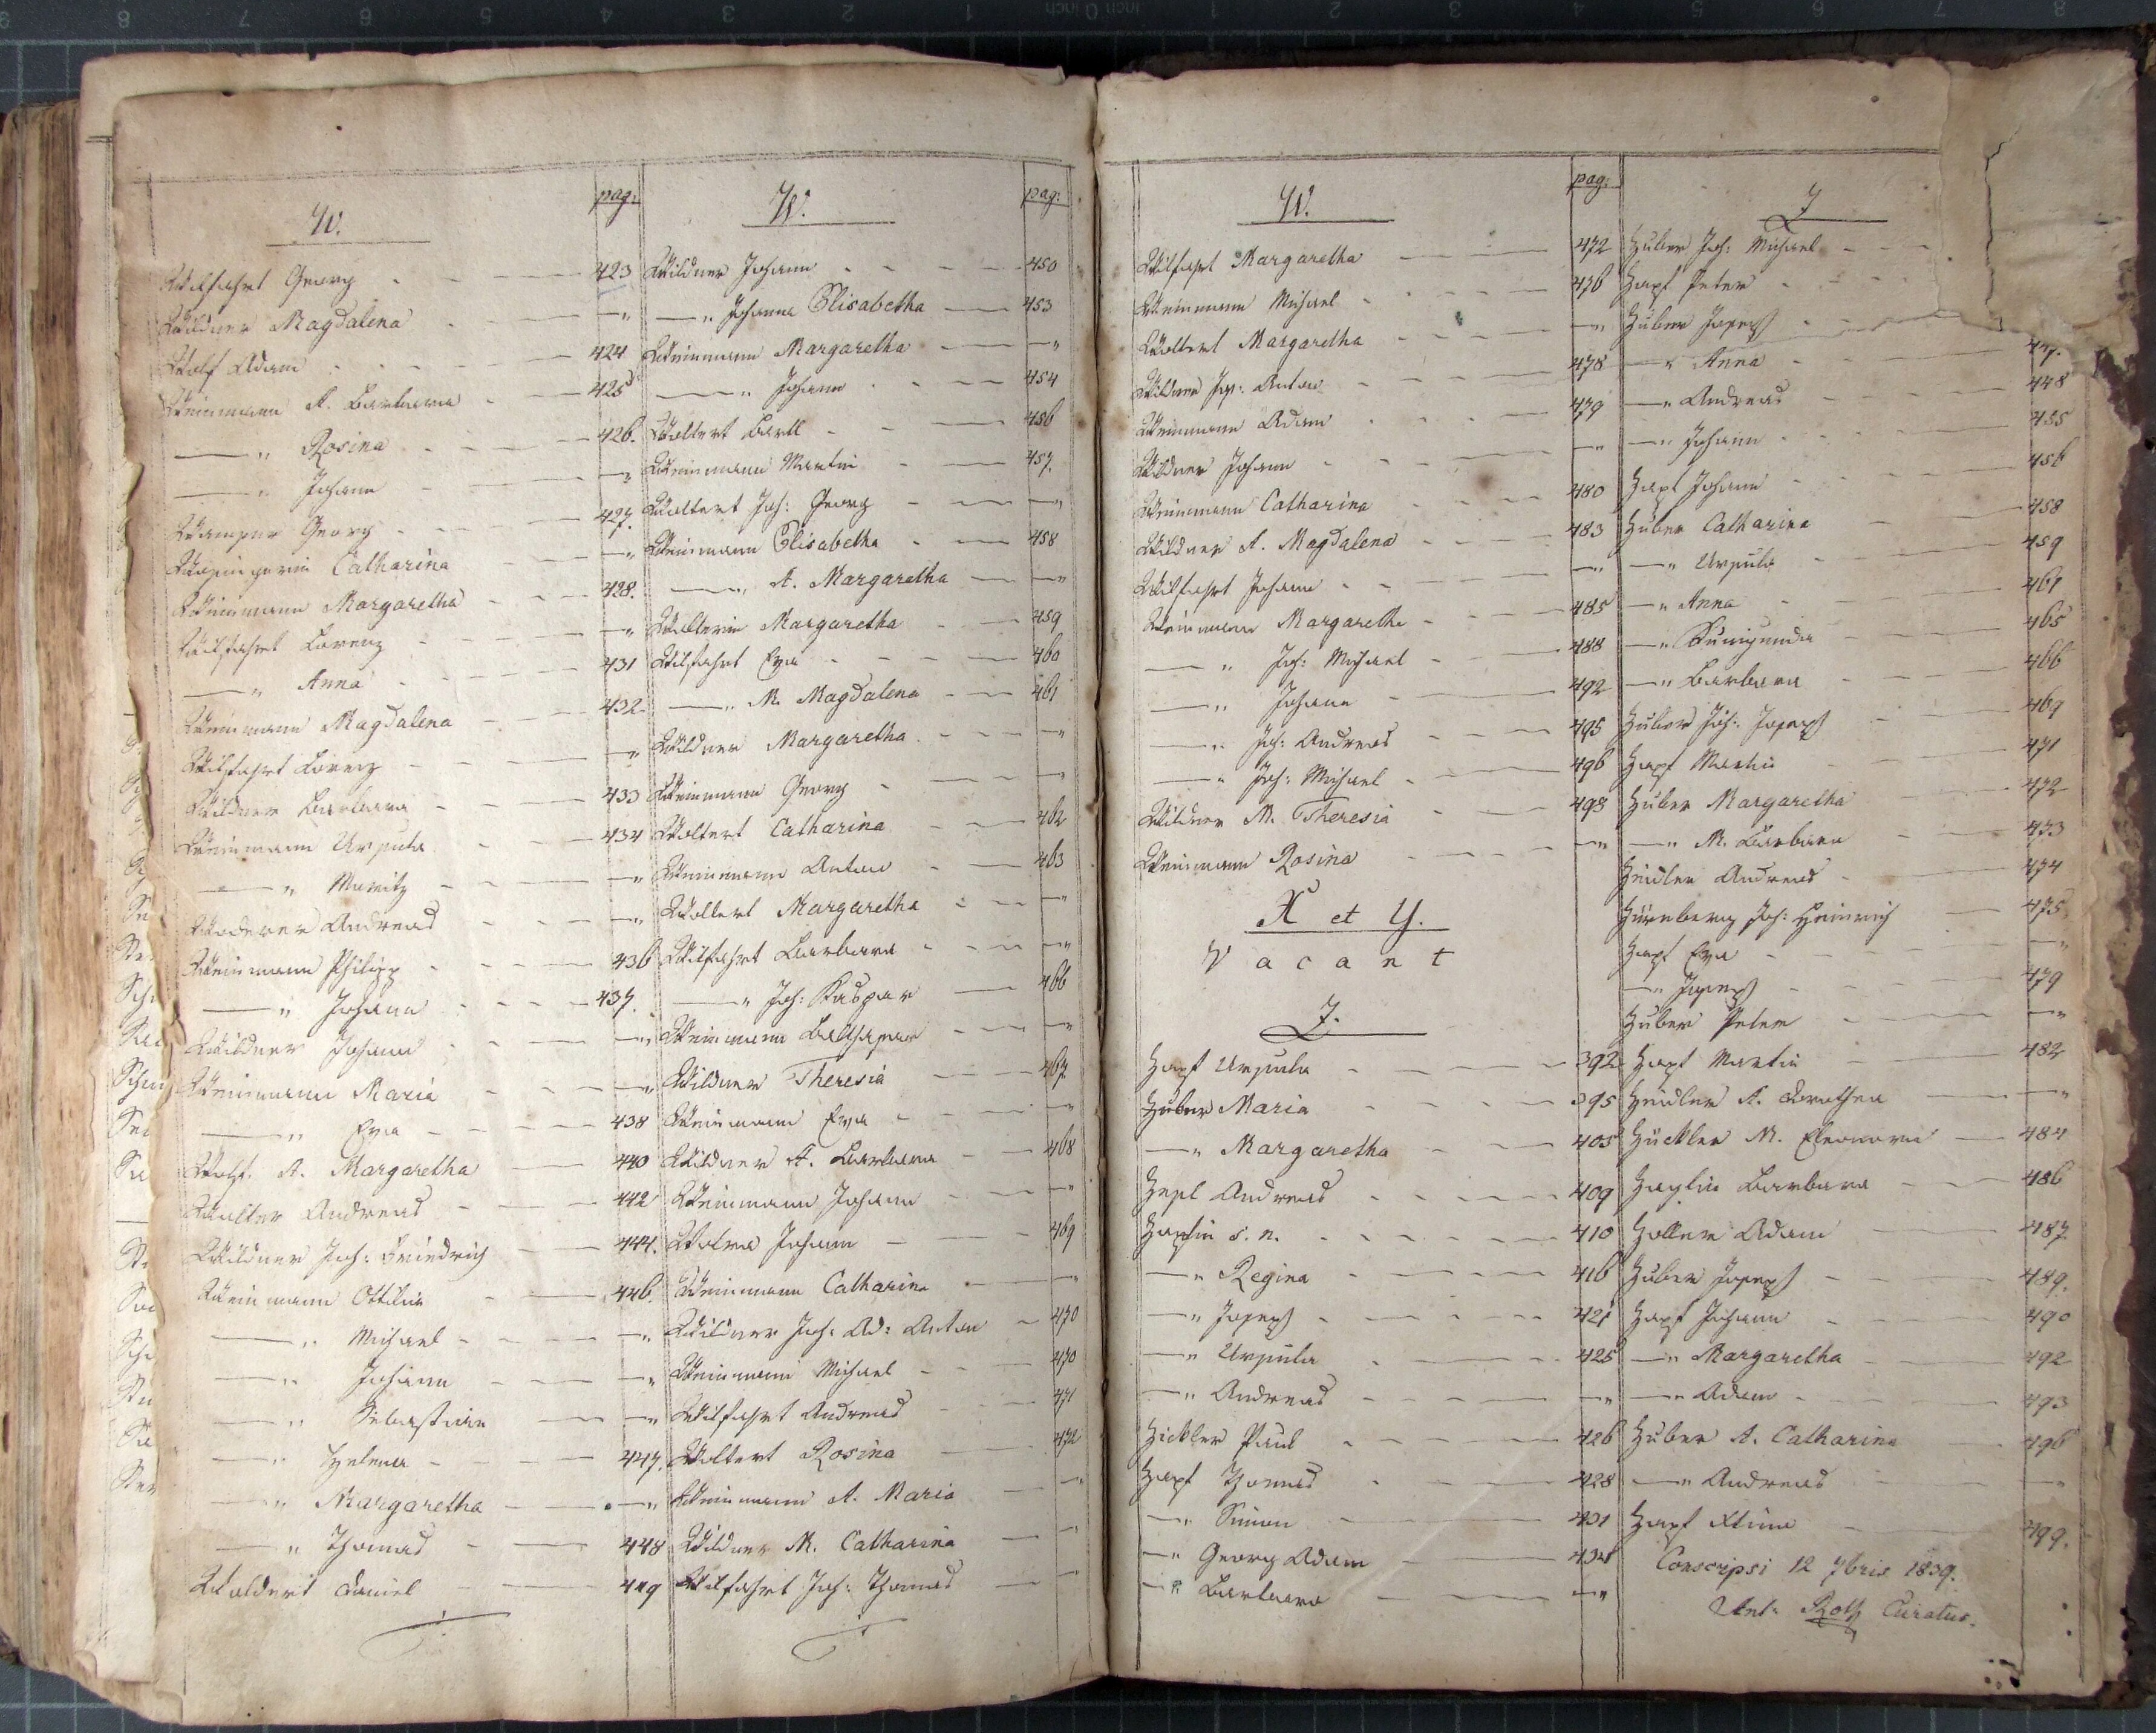 W.
pag:
Wilfahrt Georg 423
Wildner Magdalena — "
Wolf Adam 424
Weinmann A. Barbara 425
— " Rosina 426.
— " Johann — "
Wamser Georg 427.
Catharina — "
Weinmann Margaretha 428.
Wilfahrt Lorenz — "
— " Anna 431
Weinmann Magdalena 432
Wilfahrt Lorenz — "
Wildner Barbara 433
Weinmann Ursula 434
— " Moritz — "
Andreas — "
Weinmann Philipp 436
— " Johann 437.
Wildner Johann — "
Weinmann Maria — "
— " Eva 438
Wolf A. Margaretha 440
Walter Andreas 442
Wildner Joh: Friedrich 444.
Weinmann Ottilia 446.
— " Michael — "
— " Johann — "
— " Sebastian — "
— " Helena 447.
— " Margaretha — "
— " Thomas 448
Waldert Daniel 449
W.
pag:
Wildner Johann 450
— " Johanna Elisabetha 453
Weinmann Margaretha — "
— " Johann 454
Woltert Bartl 456
Weinmann Martin 457.
Woltert Joh: Georg — "
Weinmann Elisabetha 458
— " A. Margaretha — "
Margaretha 459
Wilfahrt Eva 460
— " M. Magdalena 461
Wildner Margaretha — "
Weinmann Georg — "
Woltert Catharina 462
Weinmann Anton 463
Woltert Margaretha — "
Wilfahrt Barbara — "
— " Joh: Kaspar 466
Weinmann Balthasar — "
Wildner Theresia 467.
Weinmann Eva — "
Wildner A. Barbara 468
Weinmann Johann — "
Johann 469
Weinmann Catharina — "
Wildner Joh: Ad: Anton 470
Weinmann Michael 470
Wilfahrt Andreas 471
Woltert Rosina 472
Weinmann A. Maria — "
Wildner M. Catharina — "
Wilfahrt Joh: Thomas — "
W.
pag:
Wilfahrt Margaretha 472
Weinmann Michael 476
Woltert Margaretha — "
Wildner Anton 478
Weinmann Adam 479
Wildner Johann — "
Weinmann Catharina 480
Wildner A. Magdalena 483
Wilfahrt Johann — "
Weinmann Margaretha 485
— " Joh: Michael 488
— " Johann 492
— " Joh: Andreas 495
— " Joh: Michael 496
Wildner M. Theresia 498
Weinmann Rosina — "
X et Y.
Vacant
Z.
Zapf Ursula 392
Zuber Maria 395
— " Margaretha 405
Andreas 409
s. n. 410
— " Regina 416
— " Joseph 421
— " Ursula 425
— " Andreas — "
Zickler Paul 426
Zapf Thomas 428
— " Simon 431
— " Georg Adam 434
— " Barbara — "
Z
Zuber Joh: Michael
Zapf Peter
Zuber Joseph
— " Anna 447.
— " Andreas 448
— " Johann 455
Zapf Johann 456
Zuber Catharina 458
— " Ursula 459
— " Anna 461
— " Kunigunda 465
— " Barbara 466
Zuber Joh: Joseph 469
Zapf Martin 471
Zuber Margaretha 472
— " M. Barbara 473
Zeidler Andreas 474
Joh: Heinrich 475
Zapf Eva — "
— " Joseph 479
Zuber Peter — "
Zapf Martin 482
Zeidler A. Dorothea — "
Zückler M. Eleonora 484
Barbara 486
Zoller Adam 487.
Zuber Joseph 489.
Zapf Johann 490
— " Margaretha 492
— " Adam 493
Zuber A. Catharina 496
— " Andreas — "
Zapf 499.
Conscripsi 12 7bris 1839.
Ant: Roth Curatus.